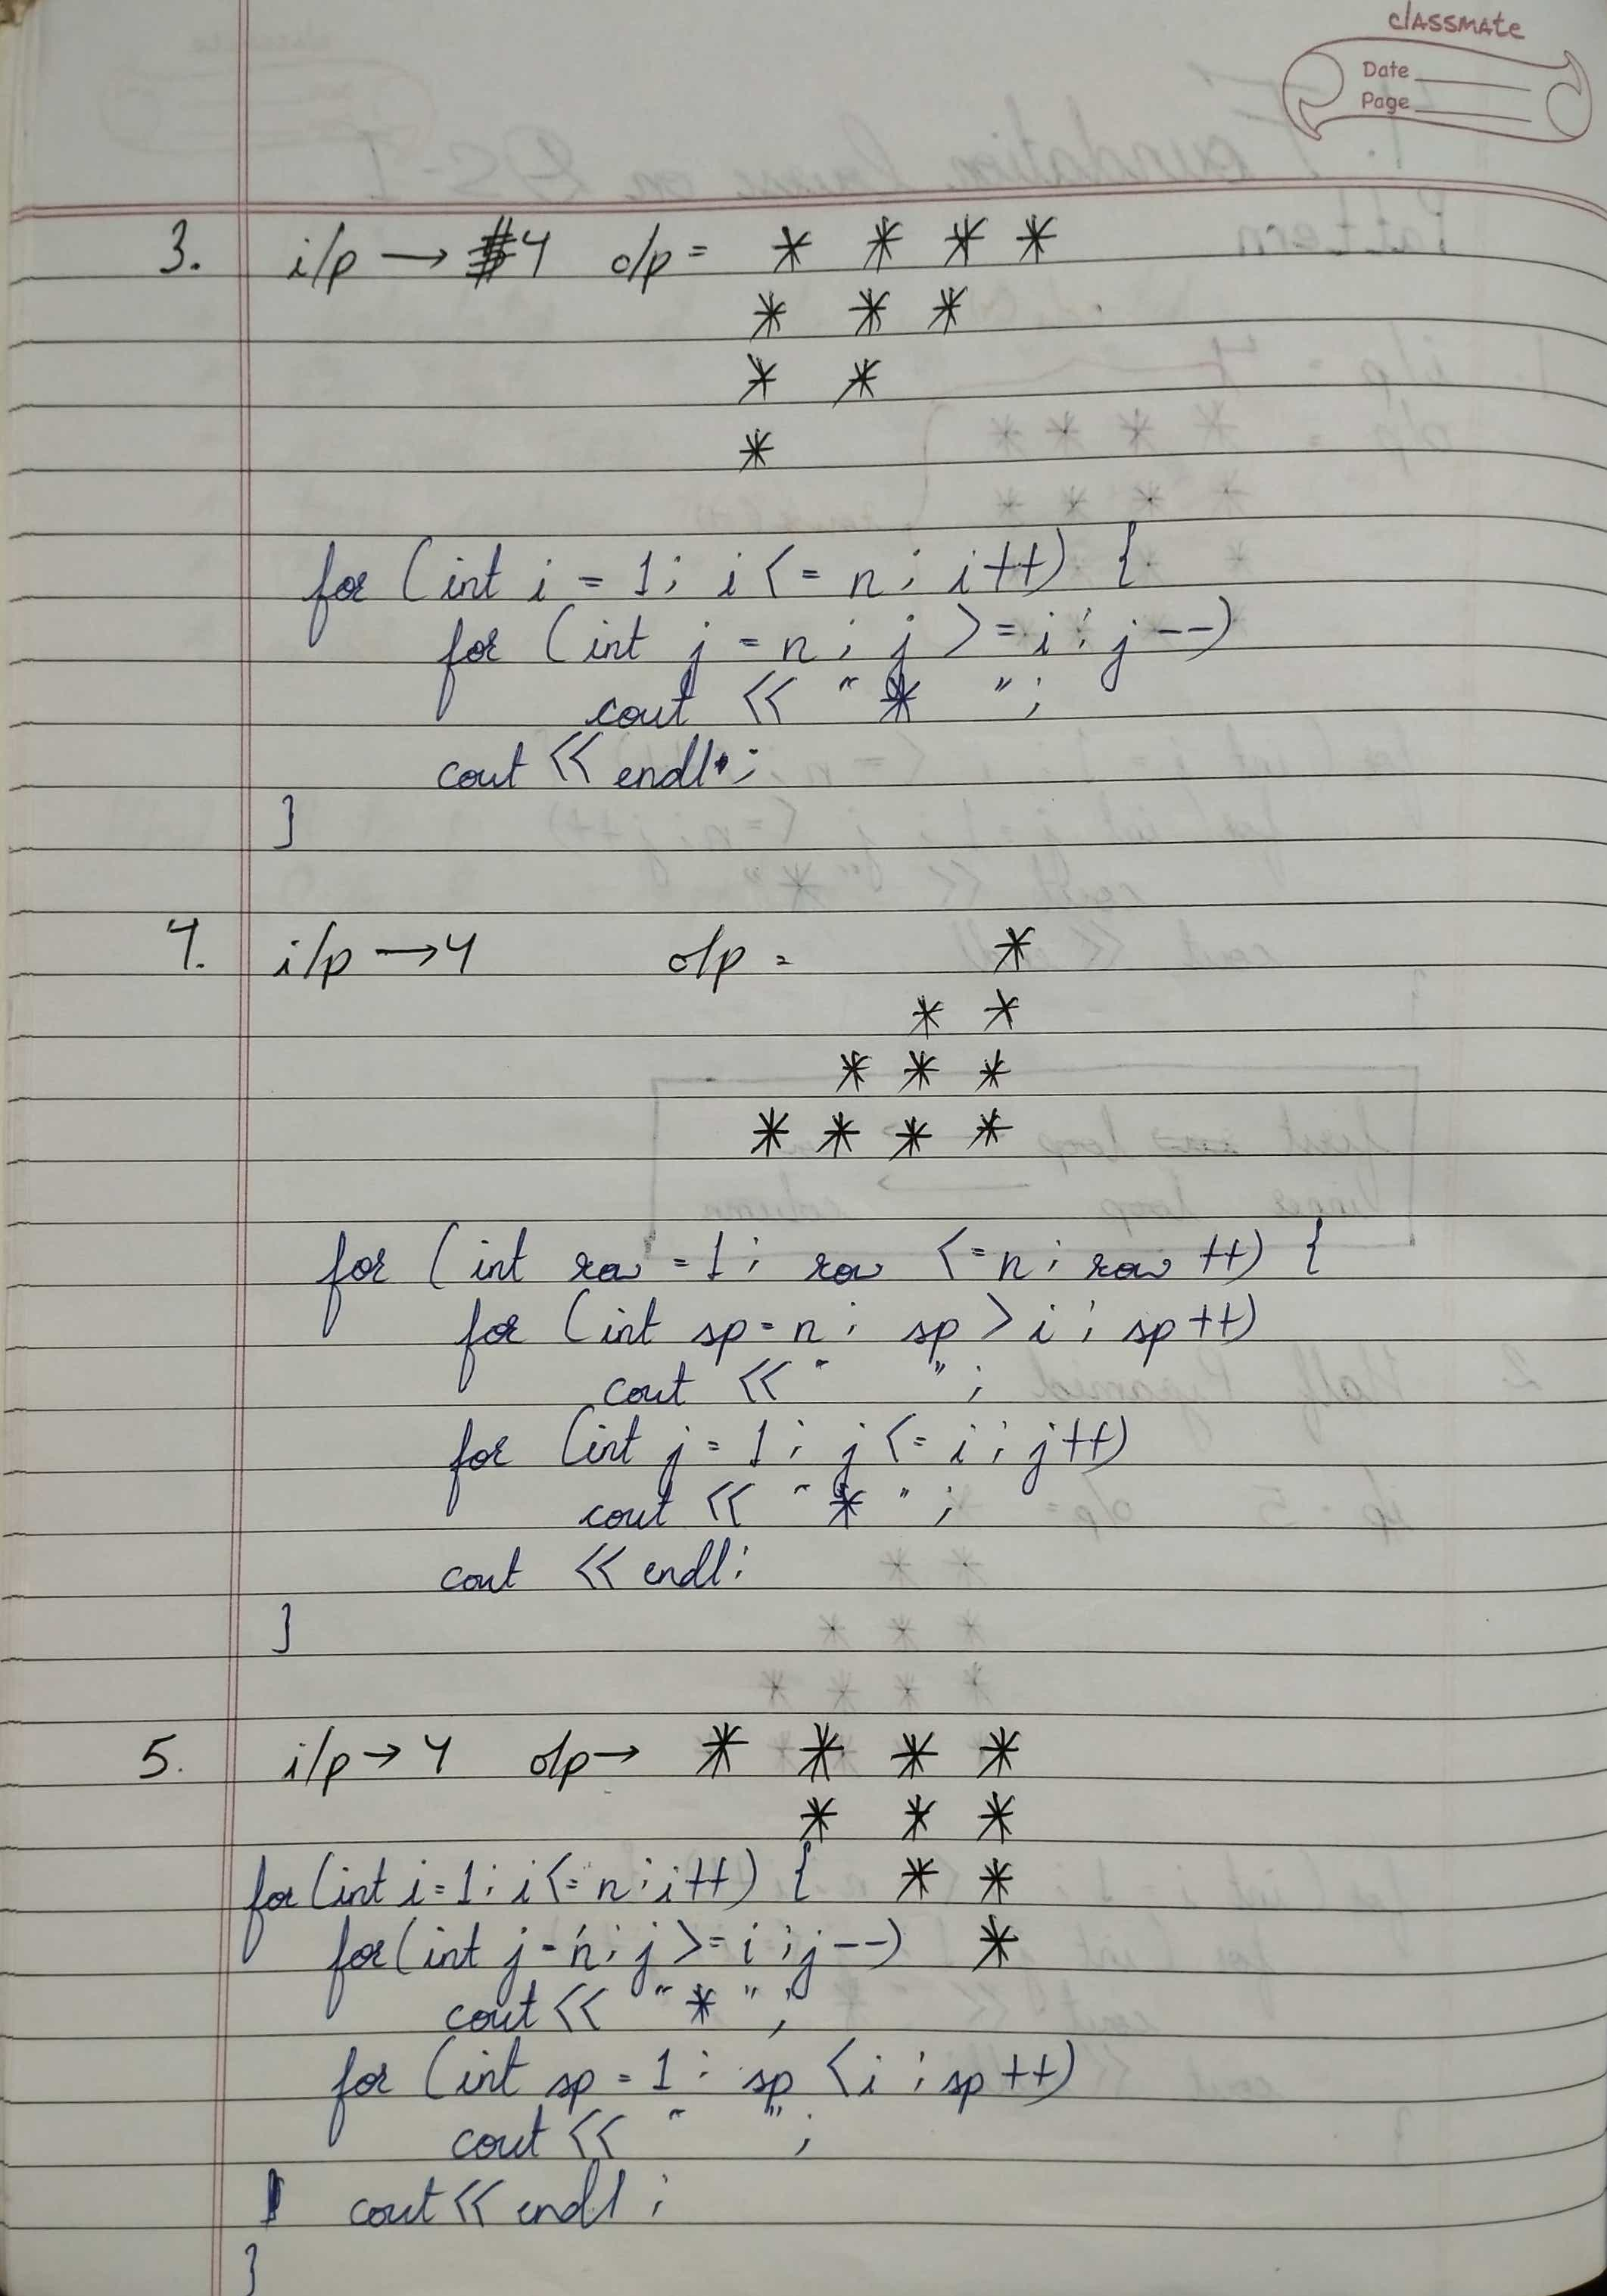 classmate
Date
Page
3. i/p → 4 o/p = * * * *
* * *
* *
*
for (int i = 1; i <= n; i++) {
for (int j = n; j >= i; j--)
cout << " * ";
cout << endl;
}
4. i/p → 4 o/p = *
* *
* * *
* * * *
for (int row = 1; row <= n; row ++) {
for (int sp = n; sp > i; sp++)
cout << " ";
for (int j = 1; j <= i; j++)
cout << " * ";
cout << endl;
}
5. i/p → 4 o/p → * * * *
* * *
for (int i = 1; i <= n; i++) { * *
for (int j = n; j >= i; j--) *
cout << " * ";
for (int sp = 1; sp < i; sp ++)
cout << " ";
cout << endl;
}